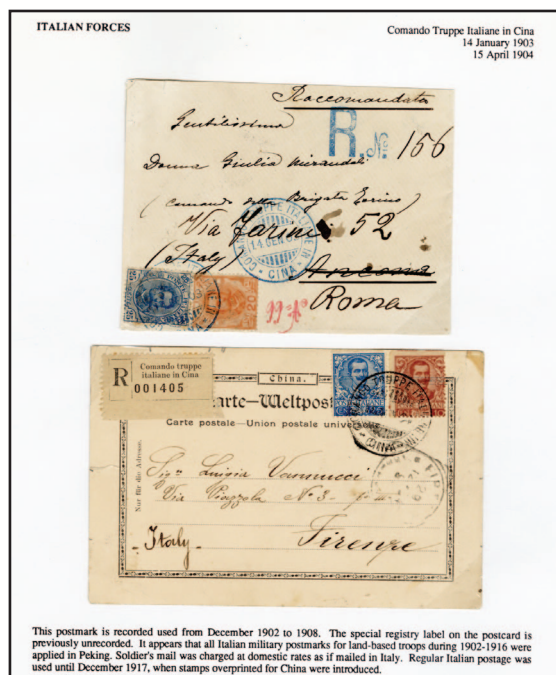 ITALIAN FORCES
Comando Truppe Italiane in Cina
14 January 1903
15 April 1904
Raccomandata
R. No 156
Gentilissima
Donna Giulia Mirandoli
(Comando della Brigata Torino)
Via Farini 52
(Italy) Ancona
Roma
COMANDO TRUPPE ITALIANE IN CINA
14 GEN 03
20
R
Comando truppe
italiane in Cina
001405
China.
Carte-Weltpost
Carte postale-Union postale univers
Nur für die Adresse.
Sigra Luigia Vannucci
Via Piazzola No 3
Italy
Firenze
This postmark is recorded used from December 1902 to 1908. The special registry label on the postcard is
previously unrecorded. It appears that all Italian military postmarks for land-based troops during 1902-1916 were
applied in Peking. Soldier's mail was charged at domestic rates as if mailed in Italy. Regular Italian postage was
used until December 1917, when stamps overprinted for China were introduced.